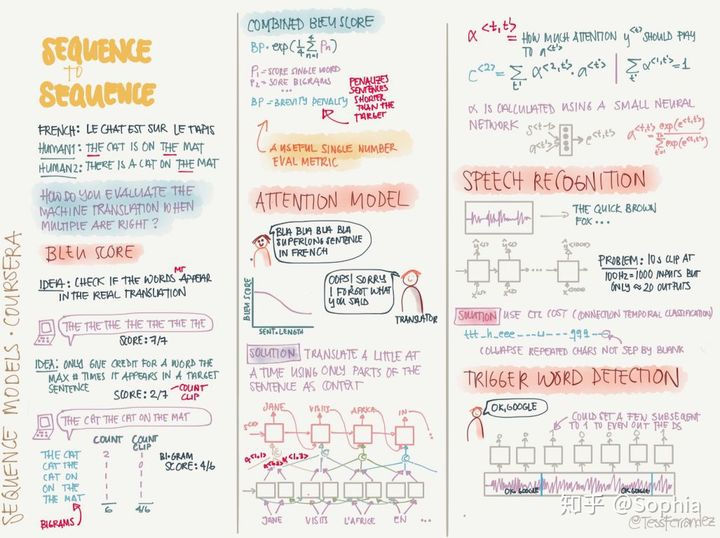 SEQUENCE MODELS · COURSERA
SEQUENCE
TO
SEQUENCE
FRENCH: LE CHAT EST SUR LE TAPIS
HUMAN1: THE CAT IS ON THE MAT
HUMAN2: THERE IS A CAT ON THE MAT
HOW DO YOU EVALUATE THE
MACHINE TRANSLATION WHEN
MULTIPLE ARE RIGHT?
BLEU SCORE
IDEA: CHECK IF THE WORDS MT APPEAR
IN THE REAL TRANSLATION
THE THE THE THE THE THE THE
SCORE: 7/7
IDEA: ONLY GIVE CREDIT FOR A WORD THE
MAX # TIMES IT APPEARS IN A TARGET
SENTENCE
SCORE: 2/7
COUNT
CLIP
THE CAT THE CAT ON THE MAT
COUNT
COUNT
CLIP
THE CAT 2 1
CAT THE 1 0
CAT ON 1 1
ON THE 1 1
THE MAT 1 1
6 4/6
BIGRAM
SCORE: 4/6
BIGRAMS
COMBINED BLEU SCORE
BP · exp(1/4 4∑n=1 Pn)
P1 = SCORE SINGLE WORD
P2 = SCORE BIGRAMS
...
BP = BREVITY PENALTY
PENALIZES
SENTENCES
SHORTER
THAN THE
TARGET
A USEFUL SINGLE NUMBER
EVAL METRIC
ATTENTION MODEL
BLA BLA BLA BLA
SUPERLONG SENTENCE
IN FRENCH
OOPS! SORRY
I FORGOT WHAT
YOU SAID
TRANSLATOR
BLEU SCORE
SENT. LENGTH
SOLUTION: TRANSLATE A LITTLE AT
A TIME USING ONLY PARTS OF THE
SENTENCE AS CONTEXT
JANE VISITS AFRICA IN ...
JANE VISITS L'AFRICE EN ...
α<t,t'> = HOW MUCH ATTENTION y<t> SHOULD PAY
TO a<t'>
C<2> = ∑t' α<2,t'> · a<t'> | ∑t' α<1,t'> = 1
α IS CALCULATED USING A SMALL NEURAL
NETWORK
s<t-1>
a<t'> → e<t,t'>
SPEECH RECOGNITION
THE QUICK BROWN
FOX ...
PROBLEM: 10s CLIP AT
100HZ = 1000 INPUTS BUT
ONLY ≈ 20 OUTPUTS
SOLUTION USE CTC COST (CONNECTION TEMPORAL CLASSIFICATION)
COLLAPSE REPEATED CHARS NOT SEP BY BLANK
TRIGGER WORD DETECTION
OK, GOOGLE
COULD SET A FEW SUBSEQUENT
TO 1 TO EVEN OUT THE DS
OK GOOGLE
OK GOOGLE
知乎 @Sophia
@TessFerrandez